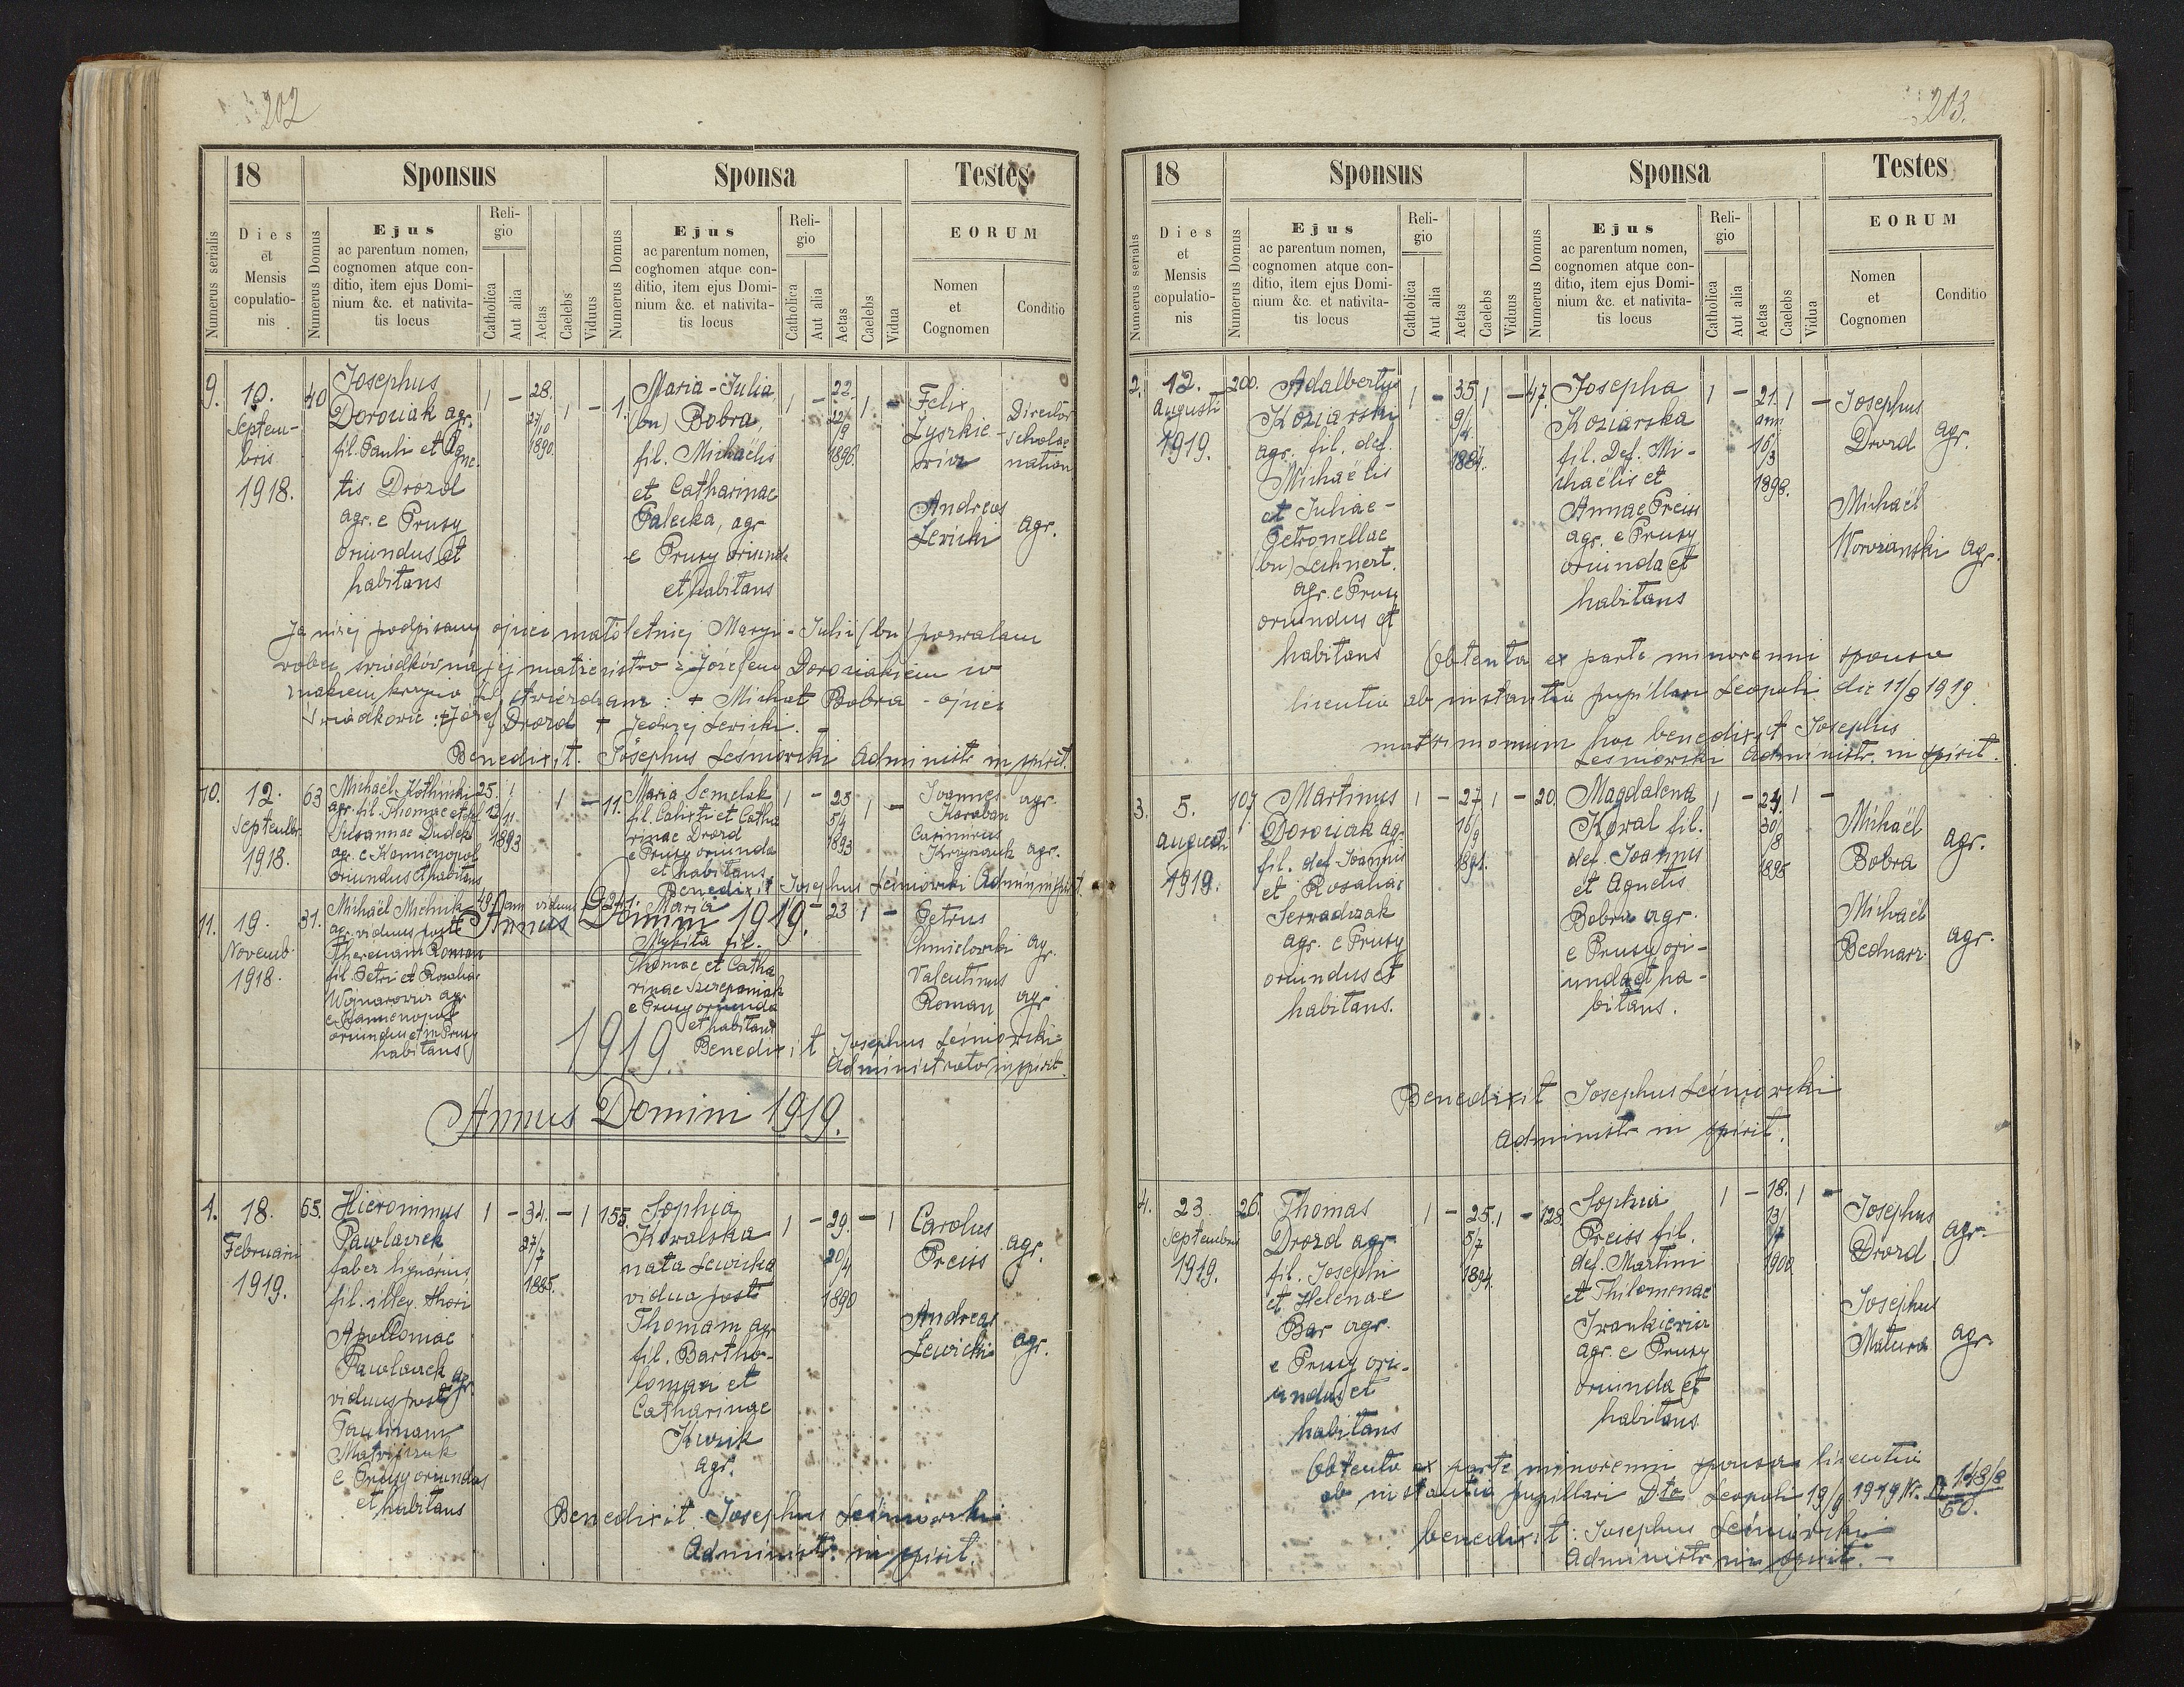 202
18
Sponsus
Sponsa
Testes
Numerus serialis
Dies
et
Mensis
copulatio-
nis
Numerus Domus
Ejus
ac parentum nomen,
cognomen atque con-
ditio, item ejus Domi-
nium &c. et nativita-
tis locus
Reli-
gio
Catholica
Aut alia
Aetas
Caelebs
Viduus
Numerus Domus
Ejus
ac parentum nomen,
cognomen atque con-
ditio, item ejus Domi-
nium &c. et nativita-
tis locus
Reli-
gio
Catholica
Aut alia
Aetas
Caelebs
Vidua
EORUM
Nomen
et
Cognomen
Conditio
9.
10.
Septem-
bris
1918.
40
Josephus
Doroziak agr.
fil. Pauli et Agne-
tis Drozd
agr. e Prusy
oriundus et
habitans
1 -
28.
27/10
1890.
1 -
1.
Maria-Julia
(bn) Bobra,
fil. Michaëlis
et Catharinae
Palecka, agr.
e Prusy oriunda
et habitans
1 -
22.
22/9
1896.
1. -
Felix
Łyszkie-
wicz
Director
scholae
nation
Andreas
Lewicki
agr.
Ja niżej podpisany ojciec małoletniej Maryi-Julii (bn) pozwalam
wobec świadków na jej małżeństwo z Józefem Doroziakiem co
znakiem krzyża św. stwierdzam: + Michał Bobra - ojciec
Świadkowie: + Józef Drozd + Jędrzej Lewicki. -
Benedixit. Josephus Leśniowski Administr. in spirit.
10.
12.
Septembr.
1918.
63
Michaël Kothiński
agr. fil. Thomae et def.
Susannae Dudek
agr. e Kamienopol
oriundus et habitans
25. 1
13/11
1893
1 -
11.
Maria Semelak
fil. Calixti et Catha
rinae Drozd
e Prusy oriunda
et habitans
1 -
25
5/4
1893
1 -
Joannes
Karaban
agr.
Casimirus
Krzyszczuk agr.
Benedixit Josephus Leśniowski Administr. spirit.
Annus Domini 1919.
11.
19.
Novemb.
1918.
31.
Michaël Michnik
agr. viduus post
Theresiam Roman
fil. Petri et Rosaliae
Wojnarowicz agr.
e Kamienopol
oriundus et in Prusy
habitans
49.
Maria
Mykita fil.
Thomae et Catha
rinae Szczepaniak
e Prusy oriunda
et habitans
23 1 -
Petrus
Chmielowski agr.
Valentinus
Roman agr.
1919.
Benedixit Josephus Leśniowski-
Administrator in spirit.
Annus Domini 1919.
1.
18.
Februarii
1919.
65.
Hieronimus
Pawlaczek
faber lignarius,
fil. illeg. thori
Apolloniae
Pawlaczek agr.
viduus post
Paulinam
Matwijczuk
e Prusy oriundus
et habitans
1 -
34.
27/7
1885.
- 1
155.
Sophia
Kowalska
nata Lewicka
vidua post
Thomam agr.
fil. Bartho-
lomaei et
Catharinae
Kuczyk
agr.
1 -
29.
20/4
1890
- 1
Carolus
Preiss
agr.
Andreas
Lewicki
agr.
Benedixit Josephus Leśniowski
Administr. in spirit.
203.
18
Sponsus
Sponsa
Testes
Numerus serialis
Dies
et
Mensis
copulatio-
nis
Numerus Domus
Ejus
ac parentum nomen,
cognomen atque con-
ditio, item ejus Domi-
nium &c. et nativita-
tis locus
Reli-
gio
Catholica
Aut alia
Aetas
Caelebs
Viduus
Numerus Domus
Ejus
ac parentum nomen,
cognomen atque con-
ditio, item ejus Domi-
nium &c. et nativita-
tis locus
Reli-
gio
Catholica
Aut alia
Aetas
Caelebs
Vidua
EORUM
Nomen
et
Cognomen
Conditio
2.
12.
Augusti
1919.
200.
Adalbertus
Koziarski
agr. fil. def.
Michaëlis
et Juliae-
Petronellae
(bn) Lechnert.
agr. e Prusy
oriundus et
habitans
1 -
35.
9/4
1884.
1 -
47.
Josepha
Koziarska
fil. Def. Mi-
chaëlis et
Annae Preiss
agr. e Prusy
oriunda et
habitans
1 -
21.
ann
16/3
1898.
1 -
Josephus
Drozd
agr.
Michaël
Worozanski agr.
Obtenta ex parte minorenni sponsa
licentia ab instantia pupillari Leopoli die 11/8 1919.
matrimonium hoc benedixit Josephus
Leśniowski Administr. in spirit.
3.
5.
augusti
1919.
107.
Martinus
Doroziak agr.
fil. def. Joannis
et Rosaliae
Serwadczak
agr. e Prusy
oriundus et
habitans.
1 -
27
16/9
1891.
1 -
20.
Magdalena
Kowal fil.
def. Joannis
et Agnetis
Bobra agr.
e Prusy ori-
unda et ha-
bitans.
1 -
24.
30/8
1895
1 -
Michaël
Bobra
agr.
Michaël
Bednarz
agr.
Benedixit Josephus Leśniowski
Administr. in spirit.
4.
23
Septembris
1919.
26.
Thomas
Drozd agr.
fil. Josephi
et Helenae
Bar agr.
e Prusy ori-
undus et
habitans
1 -
25.
5/7
1894.
1 -
128.
Sophia
Preiss fil.
def. Martini
et Philomenae
Iwankiewicz
agr. e Prusy
oriunda et
habitans
1 -
18.
13/7
1900
1 -
Josephus
Drozd
agr.
Josephus
Matura
agr.
Obtenta ex parte minorenni sponsae licentia
ab instantia pupillari Dto Leopoli 19/9 1919 Nr.
benedixit: Josephus Leśniowski
Administr. in spirit. -